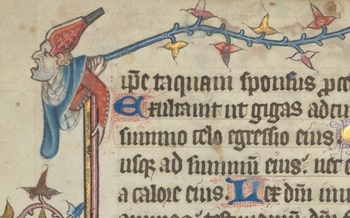 ip̅e taquam sponsus proce
Exultauit ut gigas ad cur
summo celo egressio eius
usq; ad summū eius: nec e
a calore eius Lex dn̅i inm